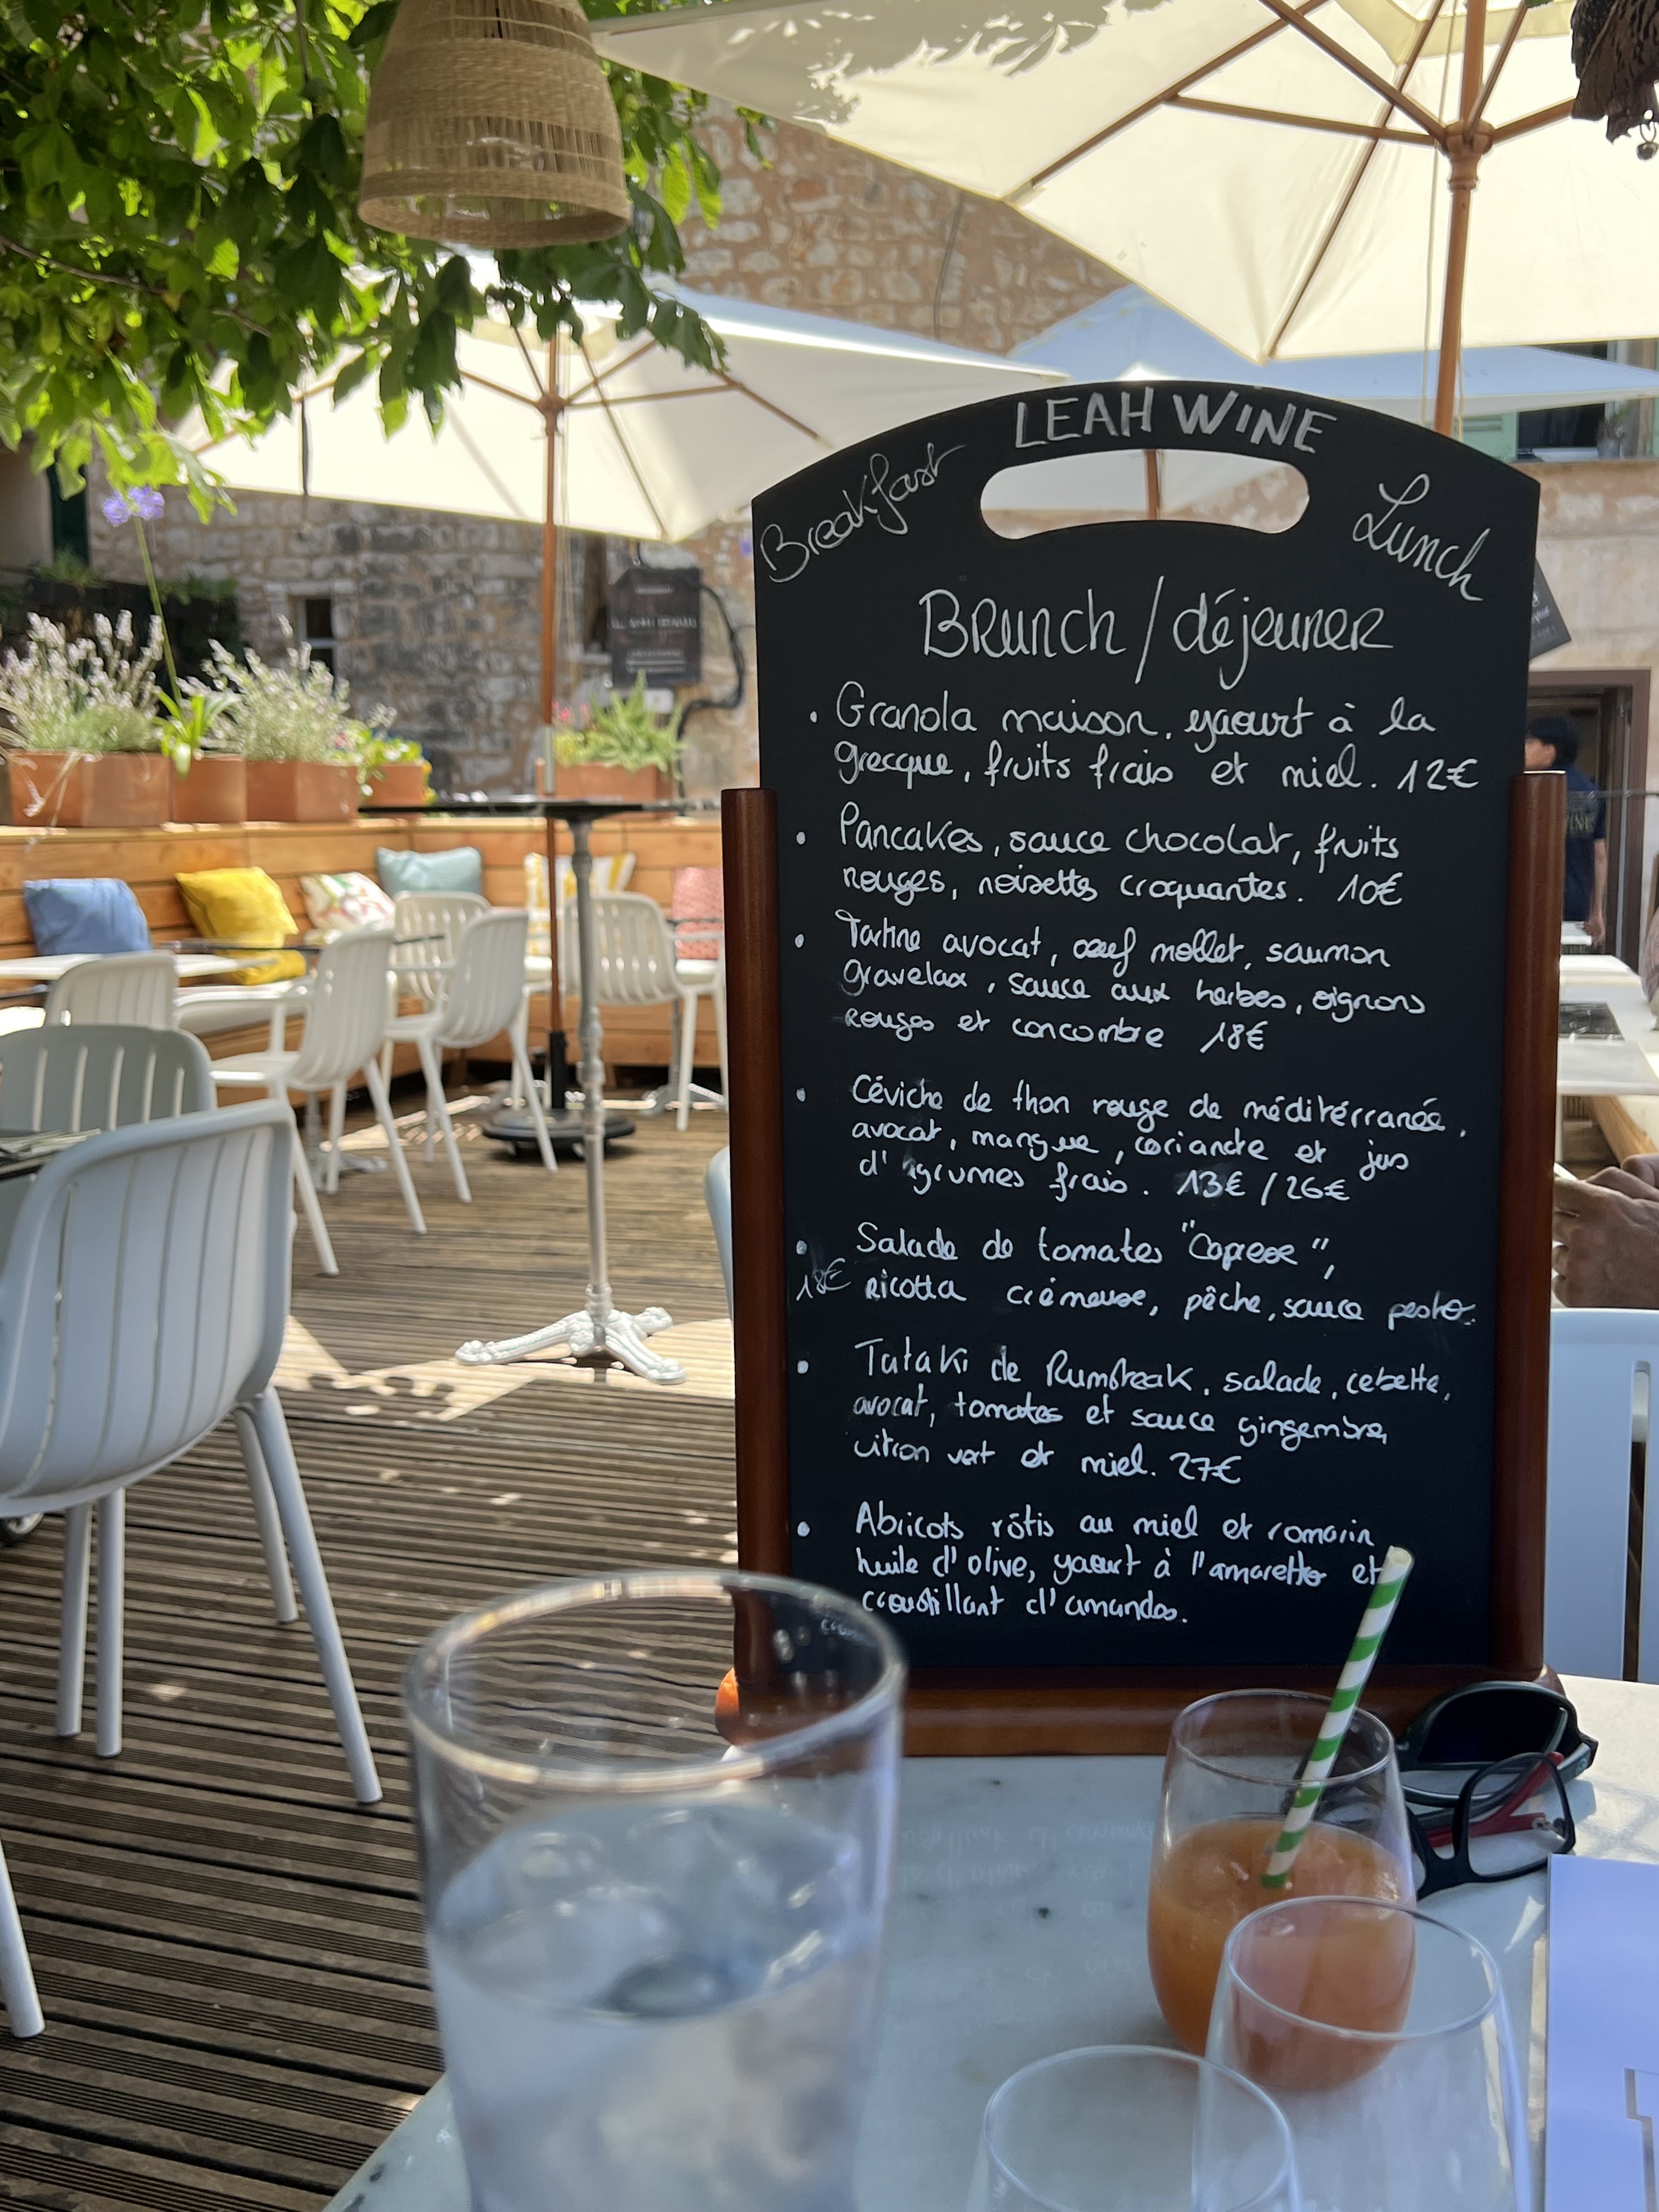 LEAH WINE
Breakfast
Lunch
Brunch / déjeuner
• Granola maison, yaourt à la
grecque, fruits frais et miel. 12€
• Pancakes, sauce chocolat, fruits
rouges, noisettes croquantes. 10€
• Tartine avocat, œuf mollet, saumon
gravelax, sauce aux herbes, oignons
rouges et concombre 18€
• Céviche de thon rouge de méditérranée,
avocat, mangue, coriandre et jus
d'agrumes frais. 13€ / 26€
• Salade de tomates "Caprese",
18€ ricotta crémeuse, pêche, sauce pesto.
• Tataki de Rumsteak, salade, cebette,
avocat, tomates et sauce gingembre,
citron vert et miel. 27€
• Abricots rôtis au miel et romarin,
huile d'olive, yaourt à l'amaretto et
croustillant d'amandes.